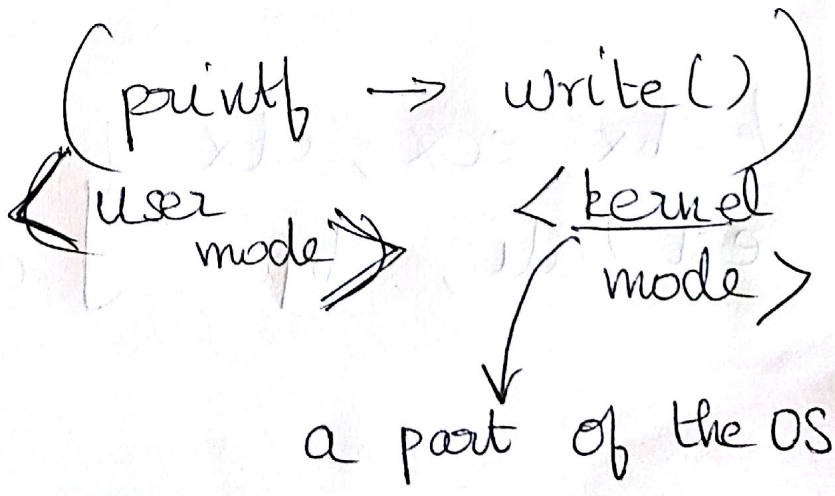 (printf → write())
<user <kernel
mode> mode>
a part of the OS